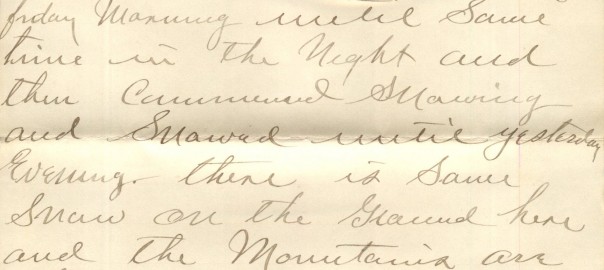 friday Morning until Some
time in the Night and
then Commenced Snowing
and Snowed until yesterday
Evening. there is Some
Snow on the Ground here
and the Mountains are